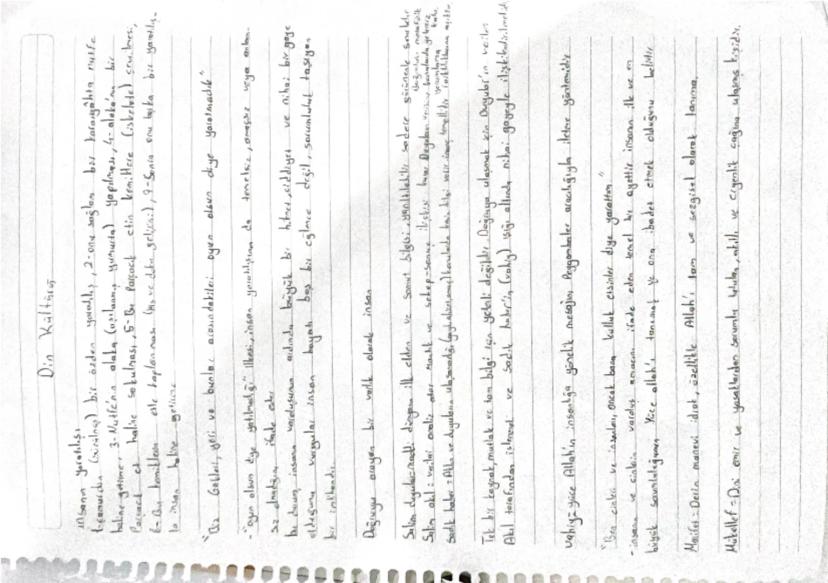 Din Kültürü
insanın yaratılışı
bir özden yaratılış, 2-onu sağlam bir karargahta nutfe
haline getirme, 3-Nutfe'nin alaka (aşılanmış yumurta) yapılması, 4-alaka'nın bir
Parçacık et haline sokulması, 5-Bu Parçacık etin kemiklere (iskelete) çevrilmesi,
6-Bu kemiklerin etle kaplanması 7-Sonra onu başka bir yaratılış-
la insan haline getirme
"Biz Gökleri, yeri ve bunlar arasındakileri oyun olsun diye yaratmadık"
-"oyun olsun diye yaratılmadığı" ilkesi, insan yaratılışının da temelsiz, amaçsız veya anlam-
sız olmadığını ifade eder
bu durum, insanın varoluşunun ardında büyük bir hikmet, ciddiyet ve nihai bir gaye
olduğunu vurgular insan hayatı boş bir eğlence değil, sorumluluk taşıyan
bir imtihandır.
Doğruyu arayan bir varlık olarak insan
Selim duyular: dünyanın ilk elden ve somut bilgisi, yanıltılabilir sadece görünenle sınırlıdır
Selim akıl: verileri analiz eder Mantık ve sebep-sonuç ilişkisi kurar
Sadık haber = Akıl ve duyuların ulaşamadığı konularda
Tek bir kaynak, mutlak ve tam bilgi için yeterli değildir. Doğruya ulaşmak için Duyular'ın verileri
Akıl tarafından işlenmeli ve sadık haber'in (vahiy) ışığı altında nihai gayeyle ilişkilendirilmelidir
Vahiy = yüce Allah'ın insanlığa yönelik mesajını Peygamberler aracılığıyla iletme yöntemidir
"Ben cinleri ve insanları, ancak bana kulluk etsinler diye yarattım"
-insanın ve cinlerin varoluş amacını ifade eden temel bir ayettir insanın ilk ve en
büyük sorumluluğunun Yüce Allah'ı tanımak ve ona ibadet etmek olduğunu belirtir
Marifet = Derin manevi idrak, özellikle Allah'ı tam ve sezgisel olarak tanıma.
Mükellef = Dini emir ve yasaklardan sorumlu tutulan, akıllı ve ergenlik çağına ulaşmış kişidir.